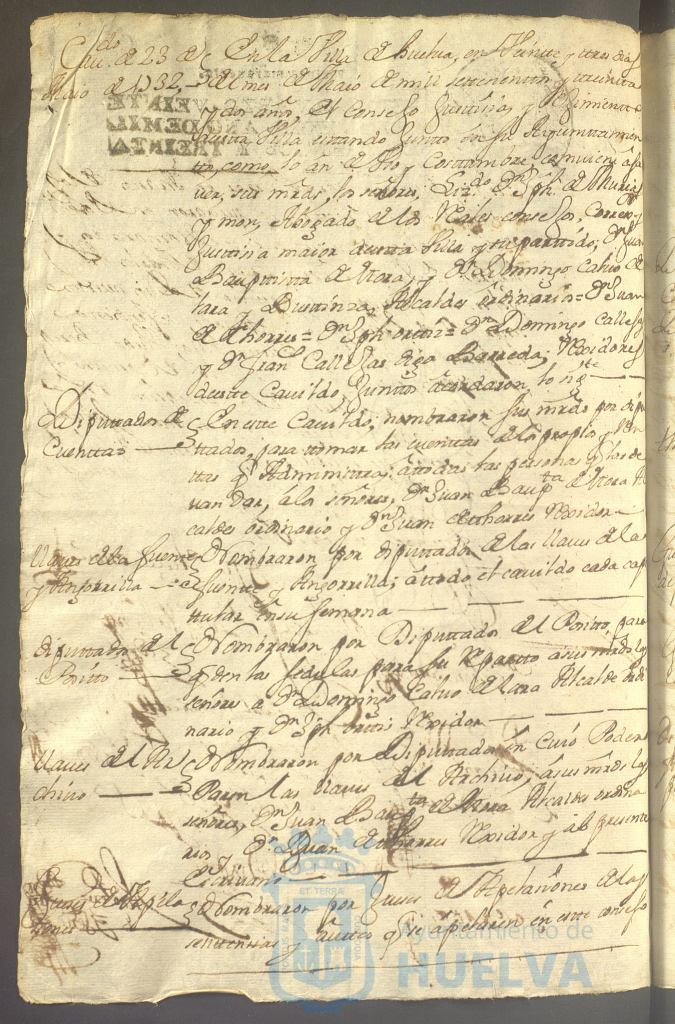 Cav.do de 23 de
Maio de 1732
En la Villa de Huelva, en Veinte y tres dias
del mes de Maio de mill settecientos y treinta
y dos años, El Consejo Justicia y Reximiento
de esta Villa estando junto en su Ayuntamien
to, como lo an de Uso y Costumbre, conviene a sa
y mon, Abogado de los Reales consejos, Correxor
Justicia maior de esta Villa y su partido; Dn Juan
Bauptista de Mora, y Dn Domingo Calvo de
Lara y Bustinza, Alcaldes ordinarios= Dn Juan
de Thorres= Dn Jph ortiz= Dn Domingo Callejas
y Dn Fran.co Callejas Rixidores
de este Cavildo, Juntos acordaron lo sig.te
Diputtados de
Cuenttas
En este Cavildo, nombraron sus mrds por dipu
ttados, para tomar las cuentas de los propios y Ren
ttas q Administtra, a todas las personas q las de
van Dar, a los señores, Dn Juan Baup.ta de Mora Al
calde ordinario y Dn Juan de Thorres Rexidor
llaves de la fuente
y Anzorrilla
Nombraron por diputtados de las llaves de la
fuente y Anzorrilla; a ttodo el cavildo cada capi
tular en su semana
diputtados del
Positto
Nombraron por Diputtados del Positto, para
q den las sedulas para su Reparto a sus mrds los
señores a Dn Domingo Calvo de Lara Alcalde ordi
nario y Dn Jph ortiz Rexidor
llaves del Ar
chivo
Nombraron por Diputtados en Cuio Poder
Paren las llaves del Archivo, a sus mrds los
señores, Dn Juan Baup.ta de Mora Alcalde ordina
rio, y Dn Juan de Thorres Rexidor y al presente
escrivano
Jueces de Apela
ziones
Nombraron por Jueces de Apelaziones de las
senttencias y auttos q se apelaren en este consejo
Ayuntamiento de
HUELVA